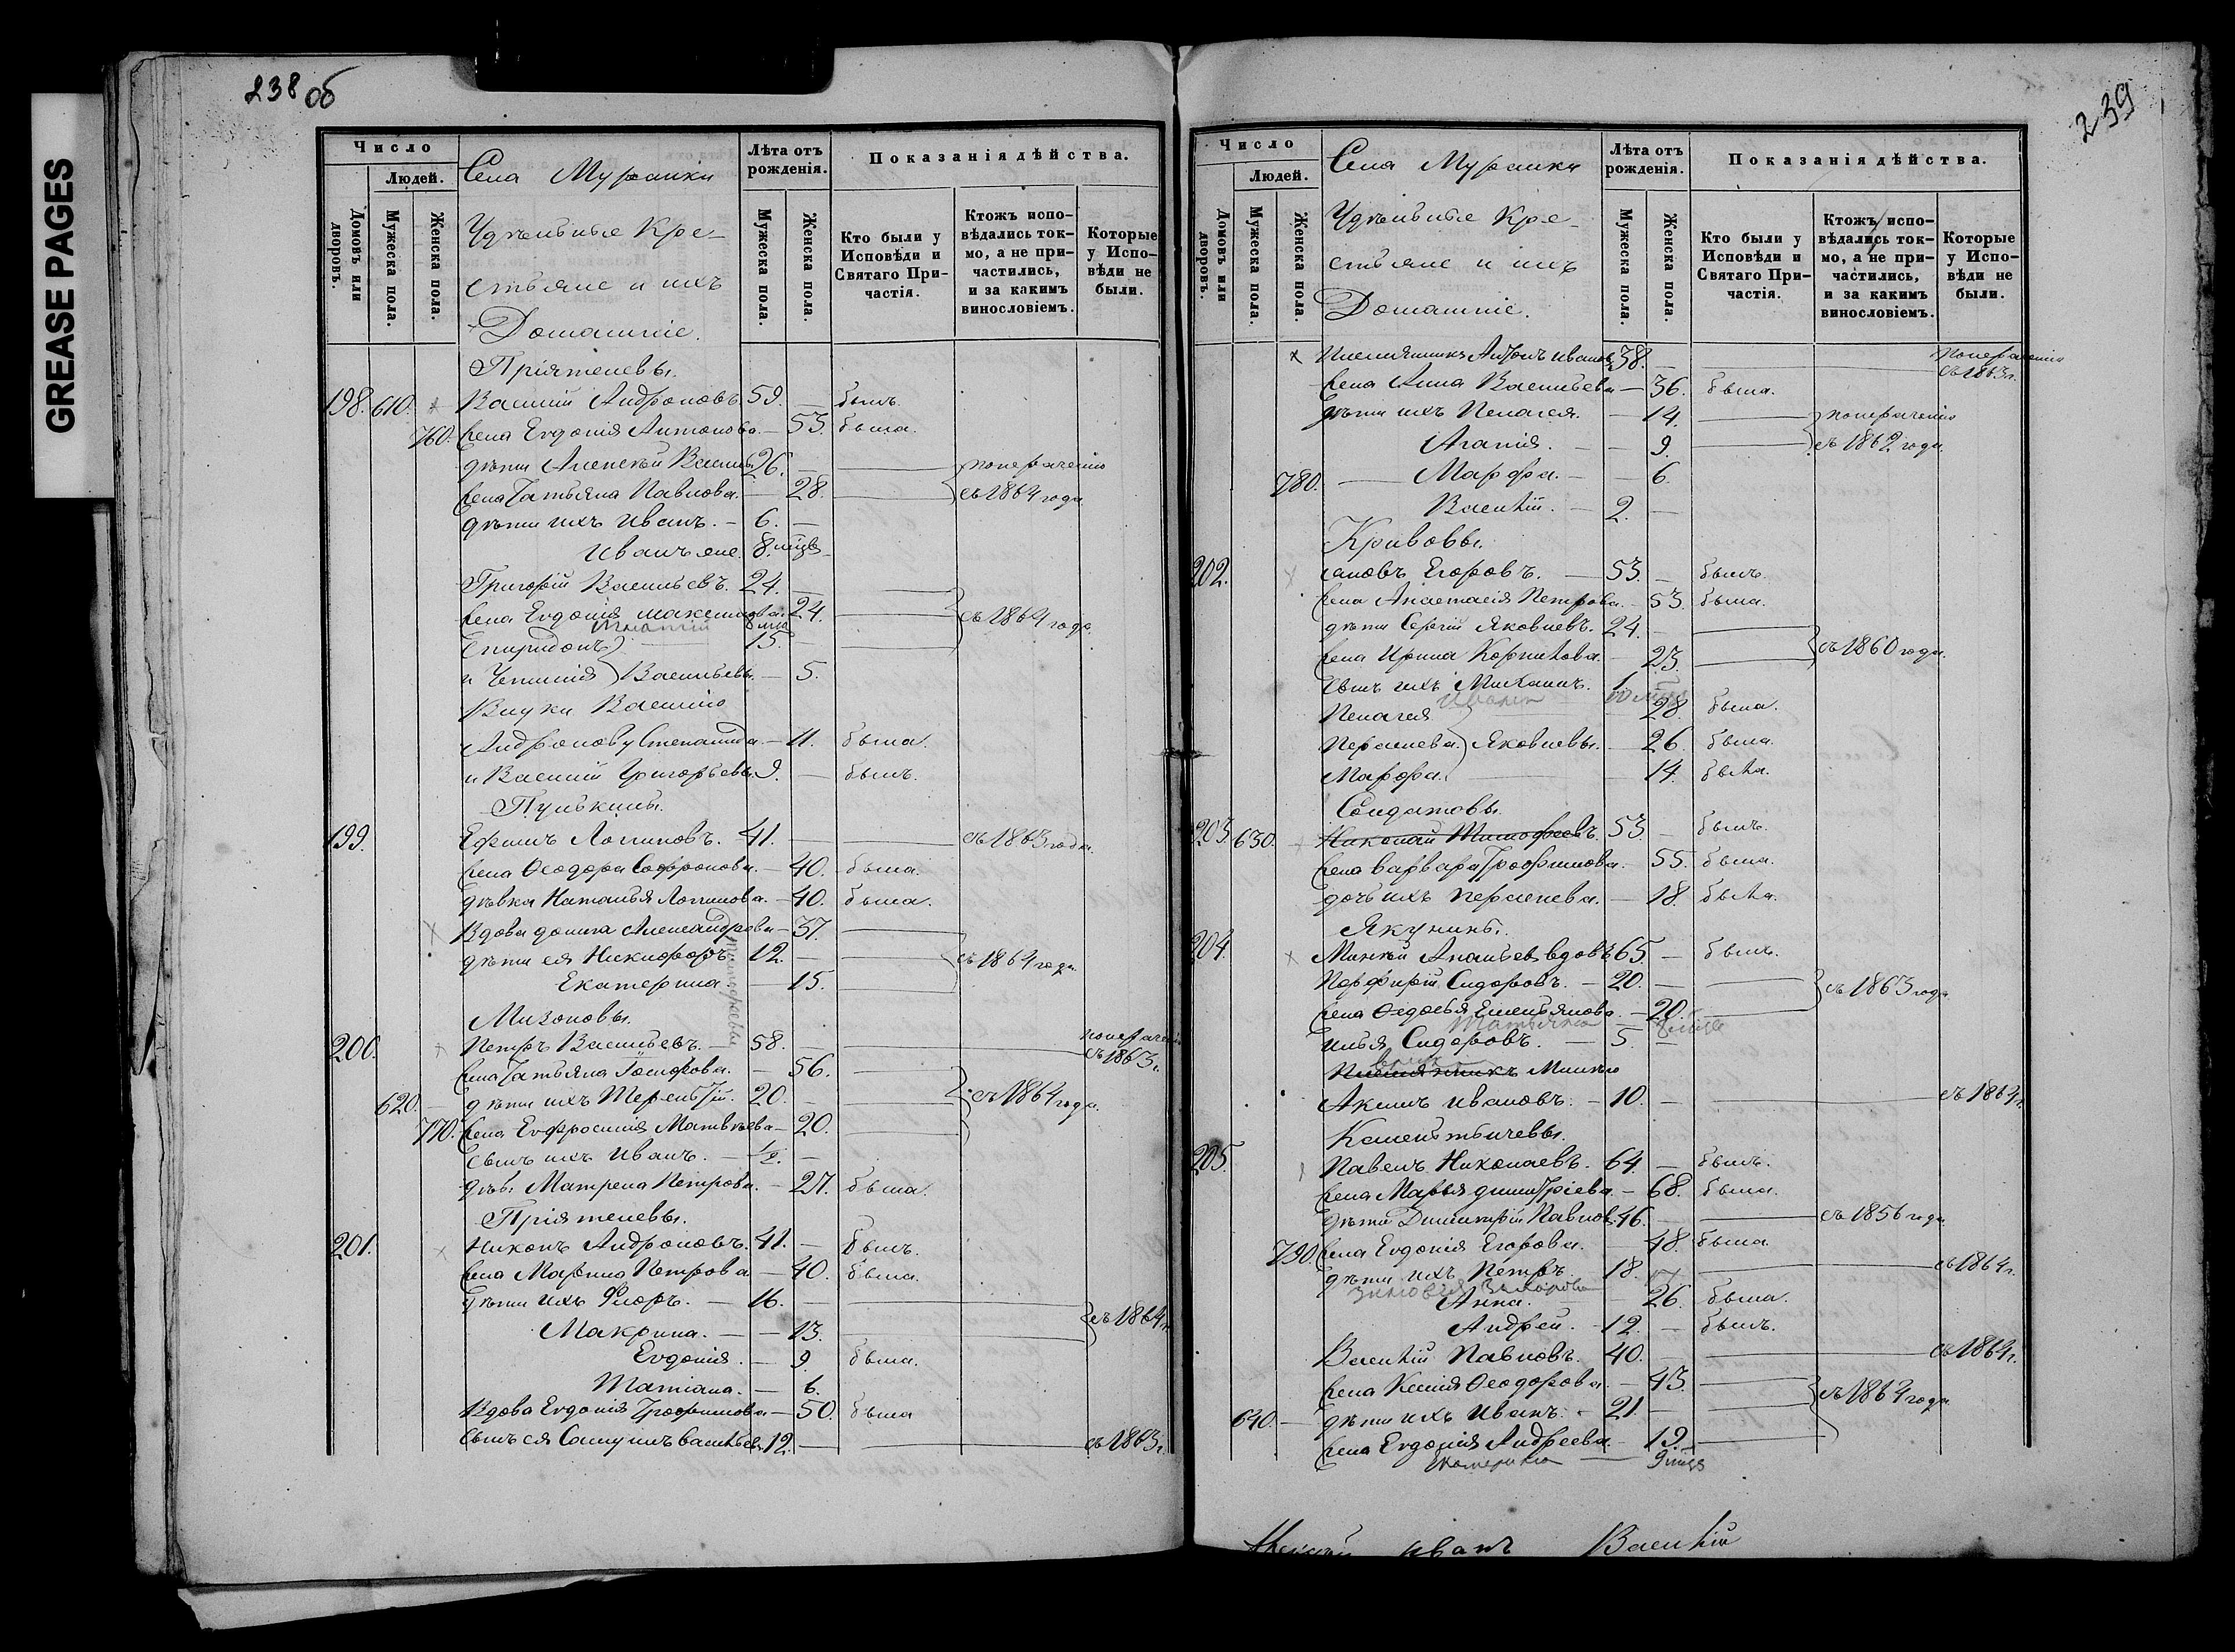 GREASE PAGES
238 об
Число
Людей.
Домовъ или дворовъ.
Мужеска пола.
Женска пола.
Села Муранки
Удѣльные Кре-
стьяне и ихъ
Домашніе.
Лѣта отъ рожденія.
Мужеска пола.
Женска пола.
Показанія дѣйства.
Кто были у Исповѣди и Святаго Причастія.
Ктожъ исповѣдались токмо, а не причастились, и за какимъ винословіемъ.
Которые у Исповѣди не были.
Пріятелевы.
198. 610. Василій Андроновъ. 59. — былъ.
760. жена Евдокія Антонова. — 53. была.
дѣти Алексѣй Василь. 26. — понераченію
жена Татьяна Павлова. — 28. съ 1864 года
дѣти ихъ Иванъ. — 6. —
Иванъ же. 8. мцв
Григорій Васильевъ. 24. —
жена Евдокія Максимова. 24. съ 1864 года.
Спиридонъ 15. —
и Ксенія Васильевы. — 5.
Внуки Василію
Андронову Степанида. — 11. была.
и Василій Григорьевы. 9. — былъ.
Пулькины.
199. Ефимъ Логиновъ. 41. — съ 1863 года.
жена Ѳеодора Софронова. — 40. была.
дѣвка Наталья Логинова. — 40. была.
Вдова домна Александрова — 37.
дѣти ея Никифоръ 12. — съ 1864 года.
Екатерина. — 15.
Тимофеевы
Мизоновы.
200. Петръ Васильевъ. — 58. — понерачен съ 1863 г.
жена Татьяна — 56.
620. дѣти ихъ Терентій. 20. — съ 1864 года.
770. жена Евфросинія Матвѣева — 20.
сынъ ихъ Иванъ. — ½. —
дѣв. Матрена Петрова. — 27. была.
Пріятелевы.
201. Никонъ Андроновъ. 41. — былъ.
жена Марина Петрова — 40. была.
дѣти ихъ Флоръ. — 16. — съ 1864 г.
Макрина. — — 13.
Евдокія. — 9. была.
Татіана. — 6.
Вдова Евдокія Трофимова — 50. была
сынъ ея Самуилъ Васильев. 12. — съ 1863 г.
239
Число
Людей.
Домовъ или дворовъ.
Мужеска пола.
Женска пола.
Села Муранки
Удѣльные Кре-
стьяне и ихъ
Домашніе.
Лѣта отъ рожденія.
Мужеска пола.
Женска пола.
Показанія дѣйства.
Кто были у Исповѣди и Святаго Причастія.
Ктожъ исповѣдались токмо, а не причастились, и за какимъ винословіемъ.
Которые у Исповѣди не были.
Племянникъ Антонъ Иванов 38. — понераченію съ 1863 г.
жена Анна Васильева — 36. была.
дѣти ихъ Пелагея. — 14. понераченію
Агапія. — — 9. съ 1862 года.
780. Марфа. — — 6.
Василій. — 2. —
Кривовы.
202. Іаковъ Егоровъ. — 53. — былъ.
жена Анастасія Петрова. — 53. была.
дѣти Сергій Яковлевъ. 24. —
жена Ирина Корнилова. — 23. съ 1860 года.
сынъ ихъ Михаилъ. 1.
Пелагея 28. была.
Параскева Яковлевы. — 26. была.
Марфа. 14. была.
Солдатовы.
203. 630. Николай Тимофеевъ. 53. — былъ.
жена Варвара Трофимова. 55. была.
дочь ихъ Параскева. — 18. была.
Якунины.
204. Минѣй Ананьев вдовъ 65. — былъ.
Порфирій Сидоровъ. — 20. — съ 1863 года
жена Ѳедосья Емельянова. — 20.
Татьяна
Илья Сидоровъ. — 5. —
Племянникъ Минѣю
Акимъ Ивановъ. — 10. — съ 1864 г.
205. Павелъ Николаевъ. 64. — былъ.
жена Марья Димитріева. — 68. была.
дѣти Димитрій Павлов. 46. — съ 1856 года.
790. жена Евдокія Егорова. 48. была.
дѣти ихъ Петръ. 18. съ 1864 г.
Анна. 26. была.
Андрей. — 12. — былъ.
Василій Павловъ. 40. — съ 1864 г.
жена Ксенія Ѳеодорова. — 43.
640. — дѣти ихъ Иванъ. — 21. — съ 1864 года
жена Евдокія Андреева. 19.
Екатерина 9 мцв
Алексѣй Иванъ Василій